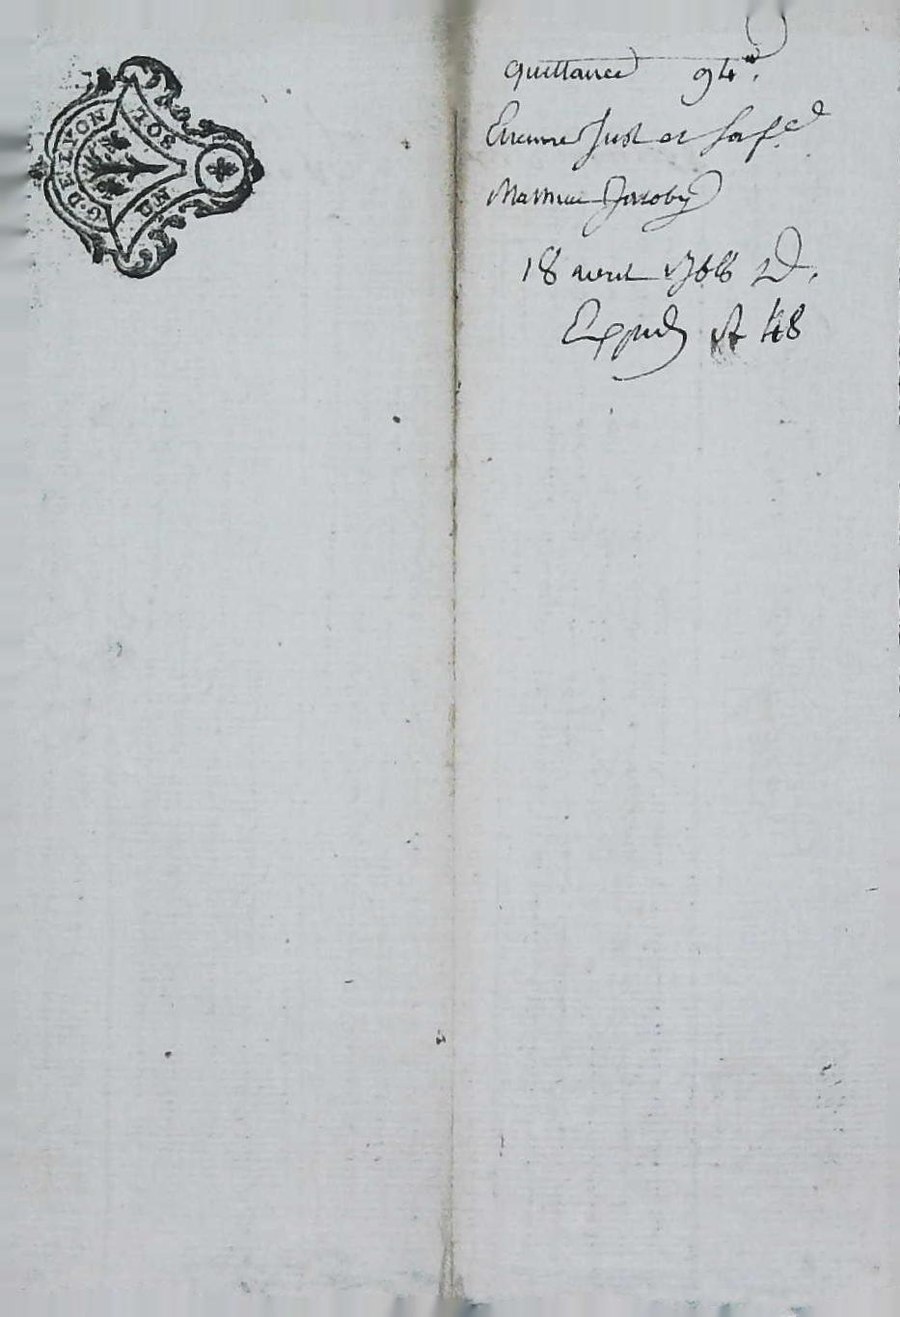 G. DE LYON
UN SOL
quittance 94
Etienne Just et sa f.e
Mathieu Jacoby
18 avril 1766
Expedi 48